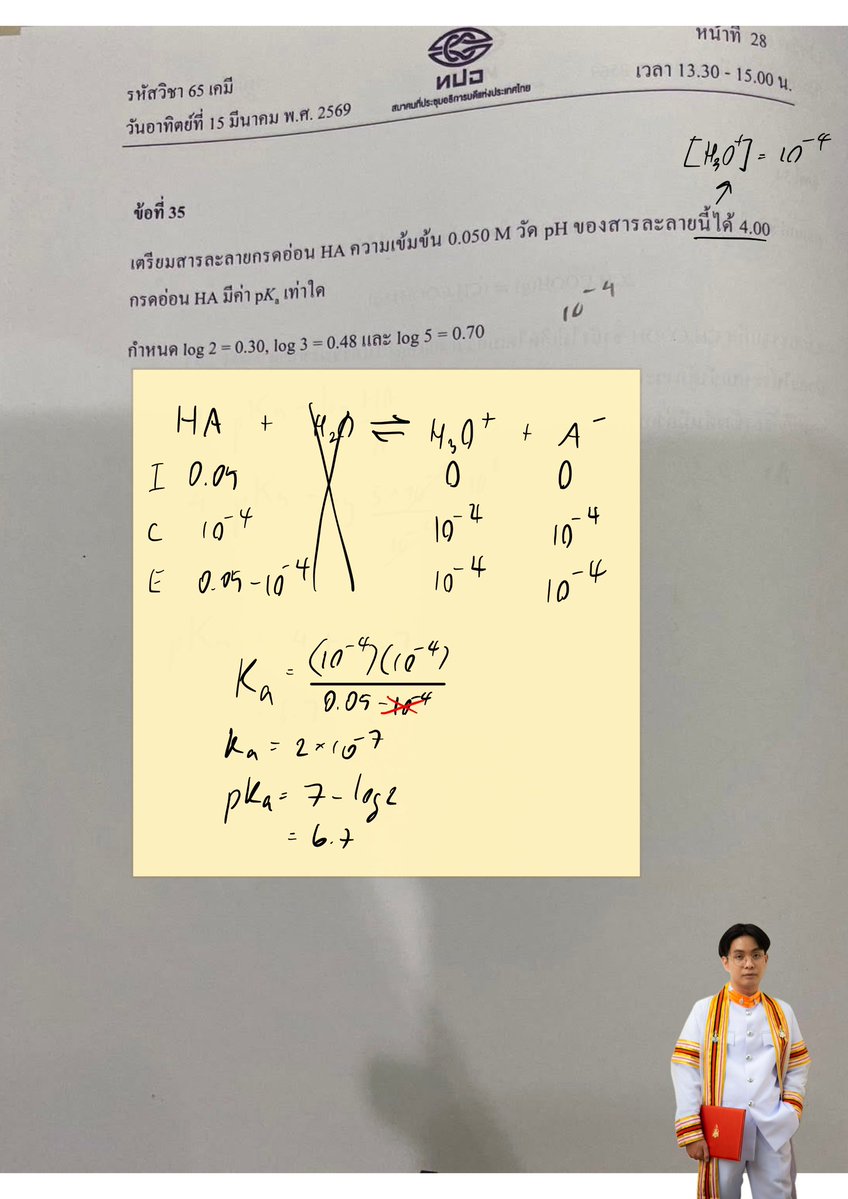 หน้าที่ 28
ทปอ
สมาคมที่ประชุมอธิการบดีแห่งประเทศไทย
รหัสวิชา 65 เคมี
เวลา 13.30 - 15.00 น.
วันอาทิตย์ที่ 15 มีนาคม พ.ศ. 2569
[H₃O⁺] = 10⁻⁴
ข้อที่ 35
เตรียมสารละลายกรดอ่อน HA ความเข้มข้น 0.050 M วัด pH ของสารละลายนี้ได้ 4.00
กรดอ่อน HA มีค่า pKₐ เท่าใด
10⁻⁴
กำหนด log 2 = 0.30, log 3 = 0.48 และ log 5 = 0.70
HA + H₂O ⇌ H₃O⁺ + A⁻
I 0.05 0 0
C 10⁻⁴ 10⁻⁴ 10⁻⁴
E 0.05-10⁻⁴ 10⁻⁴ 10⁻⁴
Ka = (10⁻⁴)(10⁻⁴)
0.05-10⁻⁴
ka = 2×10⁻⁷
pka = 7 - log2
= 6.7